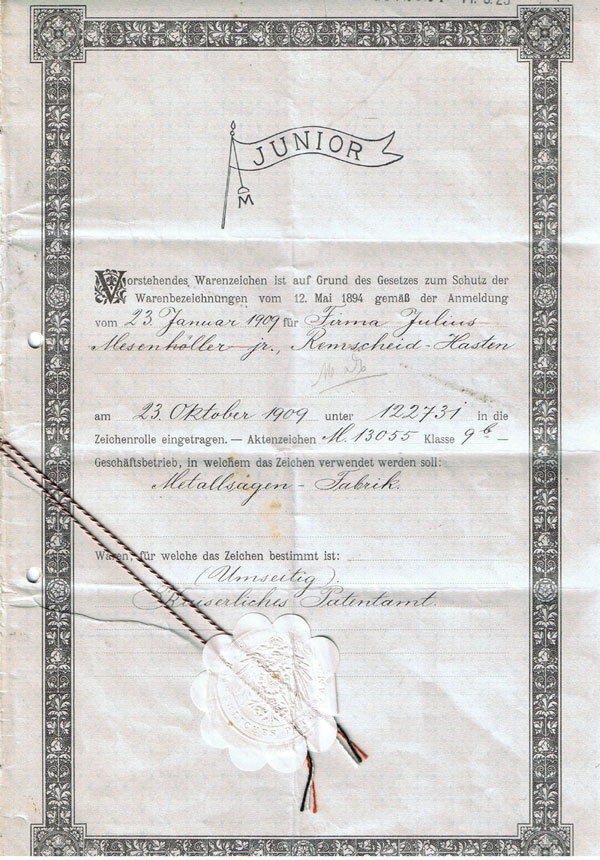 JUNIOR
M
Vorstehendes Warenzeichen ist auf Grund des Gesetzes zum Schutz der
Warenbezeichnungen vom 12. Mai 1894 gemäß der Anmeldung
vom 23. Januar 1909 für Firma Julius
Mesenhöller jr., Remscheid-Hasten
am 23. Oktober 1909 unter 122731 in die
Zeichenrolle eingetragen. — Aktenzeichen M. 13055 Klasse 9b —
Geschäftsbetrieb, in welchem das Zeichen verwendet werden soll:
Metallsägen-Fabrik.
Waren, für welche das Zeichen bestimmt ist:
(Umseitig).
Kaiserliches Patentamt.